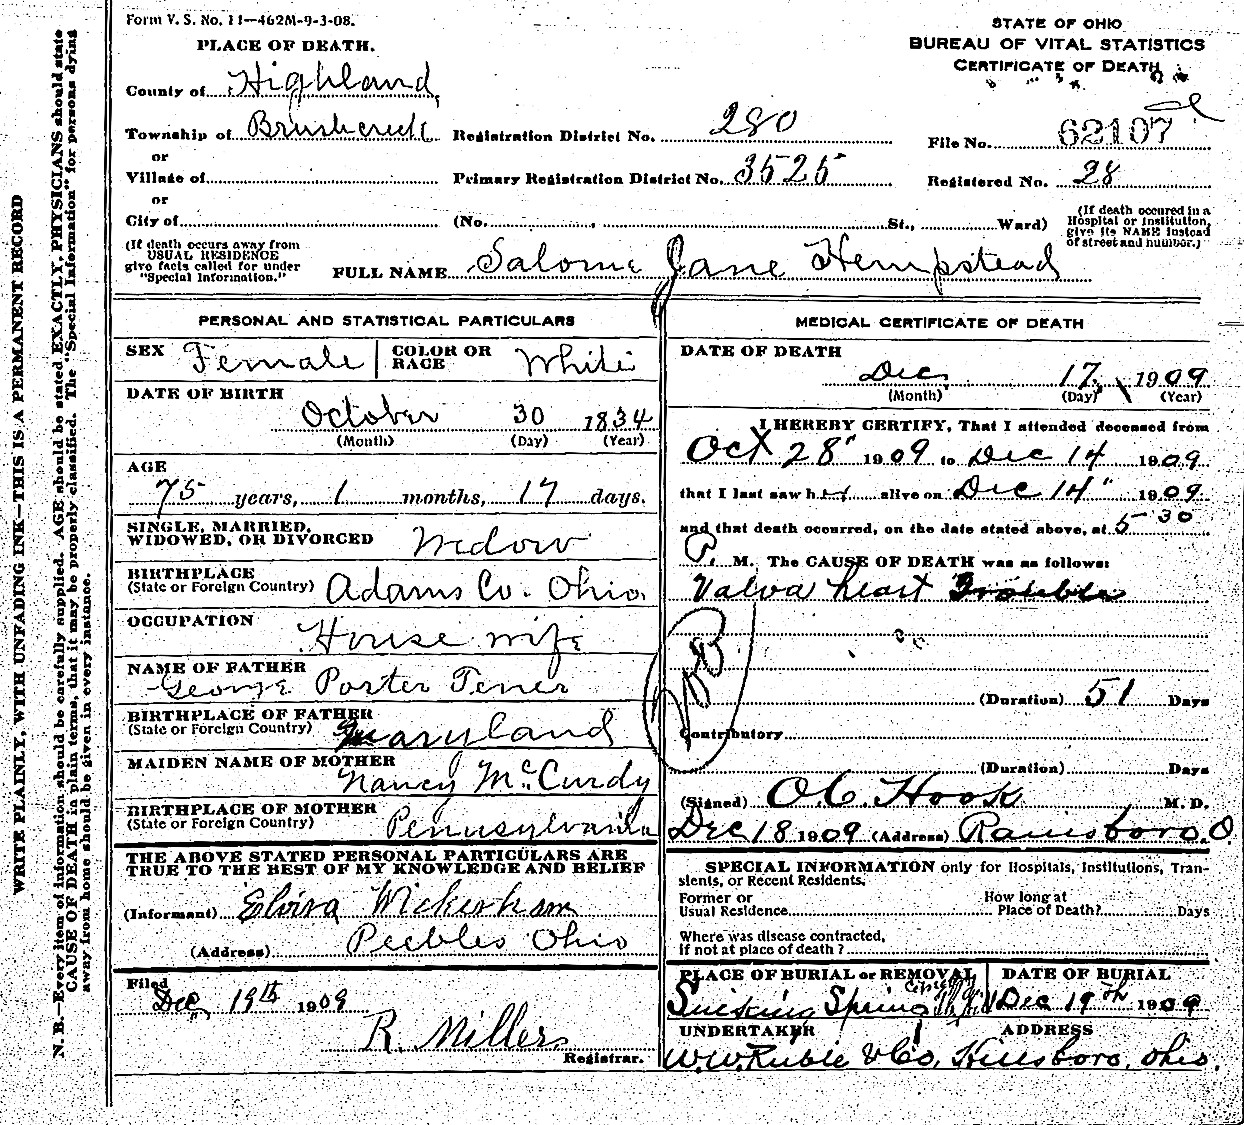 Form V. S. No. 11—462M-9-3-08.
PLACE OF DEATH.
STATE OF OHIO
BUREAU OF VITAL STATISTICS
CERTIFICATE OF DEATH
County of Highland
Township of Brushcreek Registration District No. 280 File No. 62107
or
Village of Primary Registration District No. 3525 Registered No. 28
or
City of (No. St., Ward) (If death occured in a Hospital or Institution, give its NAME instead of street and number.)
(If death occurs away from USUAL RESIDENCE give facts called for under "Special Information.")
FULL NAME Salome Jane Hempstead
PERSONAL AND STATISTICAL PARTICULARS
SEX Female COLOR OR RACE White
DATE OF BIRTH
October 30 1834
(Month) (Day) (Year)
AGE
75 years, 1 months, 17 days.
SINGLE, MARRIED,
WIDOWED, OR DIVORCED Widow
BIRTHPLACE
(State or Foreign Country) Adams Co. Ohio.
OCCUPATION
House wife
NAME OF FATHER
George Porter Tener
BIRTHPLACE OF FATHER
(State or Foreign Country) Maryland
MAIDEN NAME OF MOTHER
Nancy McCurdy
BIRTHPLACE OF MOTHER
(State or Foreign Country) Pennsylvania
THE ABOVE STATED PERSONAL PARTICULARS ARE
TRUE TO THE BEST OF MY KNOWLEDGE AND BELIEF
(Informant) Elvira Wickerham
(Address) Peebles Ohio
Filed
Dec 19th 1909
R. Miller
Registrar.
MEDICAL CERTIFICATE OF DEATH
DATE OF DEATH
Dec, 17, 1909
(Month) (Day) (Year)
I HEREBY CERTIFY, That I attended deceased from
Oct 28" 1909 to Dec 14 1909
that I last saw her alive on Dec 14" 1909
and that death occurred, on the date stated above, at 5-30
P. M. The CAUSE OF DEATH was as follows:
Valva heart Trouble
(Duration) 51 Days
Contributory
(Duration) Days
(Signed) O.C. Hook M. D.
Dec 18 1909 (Address) Rainsboro, O
SPECIAL INFORMATION only for Hospitals, Institutions, Tran-
sients, or Recent Residents.
Former or Usual Residence How long at Place of Death? Days
Where was disease contracted,
If not at place of death?
PLACE OF BURIAL or REMOVAL DATE OF BURIAL
Sincking Spring Dec 19th 1909
UNDERTAKER ADDRESS
W.W. Rubie & Co, Hillsboro, Ohio.
WRITE PLAINLY, WITH UNFADING INK—THIS IS A PERMANENT RECORD
N. B.—Every item of information should be carefully supplied. AGE should be stated EXACTLY, PHYSICIANS should state
CAUSE OF DEATH in plain terms, that it may be properly classified. The "Special Information" for persons dying
away from home should be given in every instance.